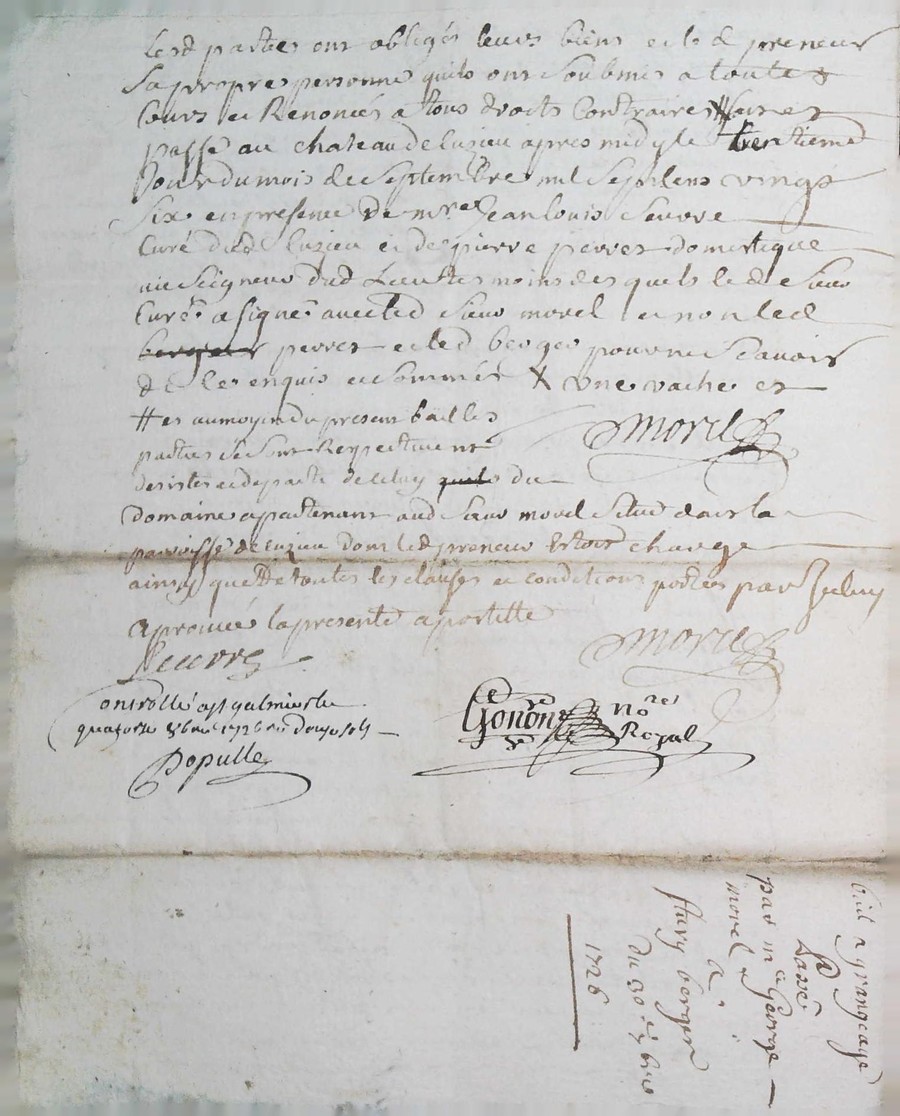 lesd parties ont obligés leurs biens et led preneur
sa propre personne quils ont soubmis a toutes
cours et Renoncés a tous droits Contraires # fait et
passé au chateau de luzieu apres midy le trentieme
Jour du mois de septembre mil sept cens vingt
six en presence de mre Jean louis
Curé dud luzieu et de pierre perret domestique
du seigneur dud Lieu tesmoins des quels led sieur
Curé a signé avec led sieur morel et non led
berger perret et led berger pour ne scavoir
de ce enquis et sommés X une vache et
# et au moyen du present bail les
parties se sont Respectivement
desistes et departe de celuy quils du
domaine apartenant aud sieur morel situé dans la
paroisse de luzieu dont led preneur Estoit charge
ainsy que de toutes les clauses et conditions portées par Jceluy
aprouvé la presente apostille
Morel
Morel
Controllé a st galmier le
quatorze 8bre 1726 Reçu douze sols
Populle
Gonon nore
Royal
bail a grangeage
passé
par mre George
morel
a
fleury berger
du 30 7bre
1726